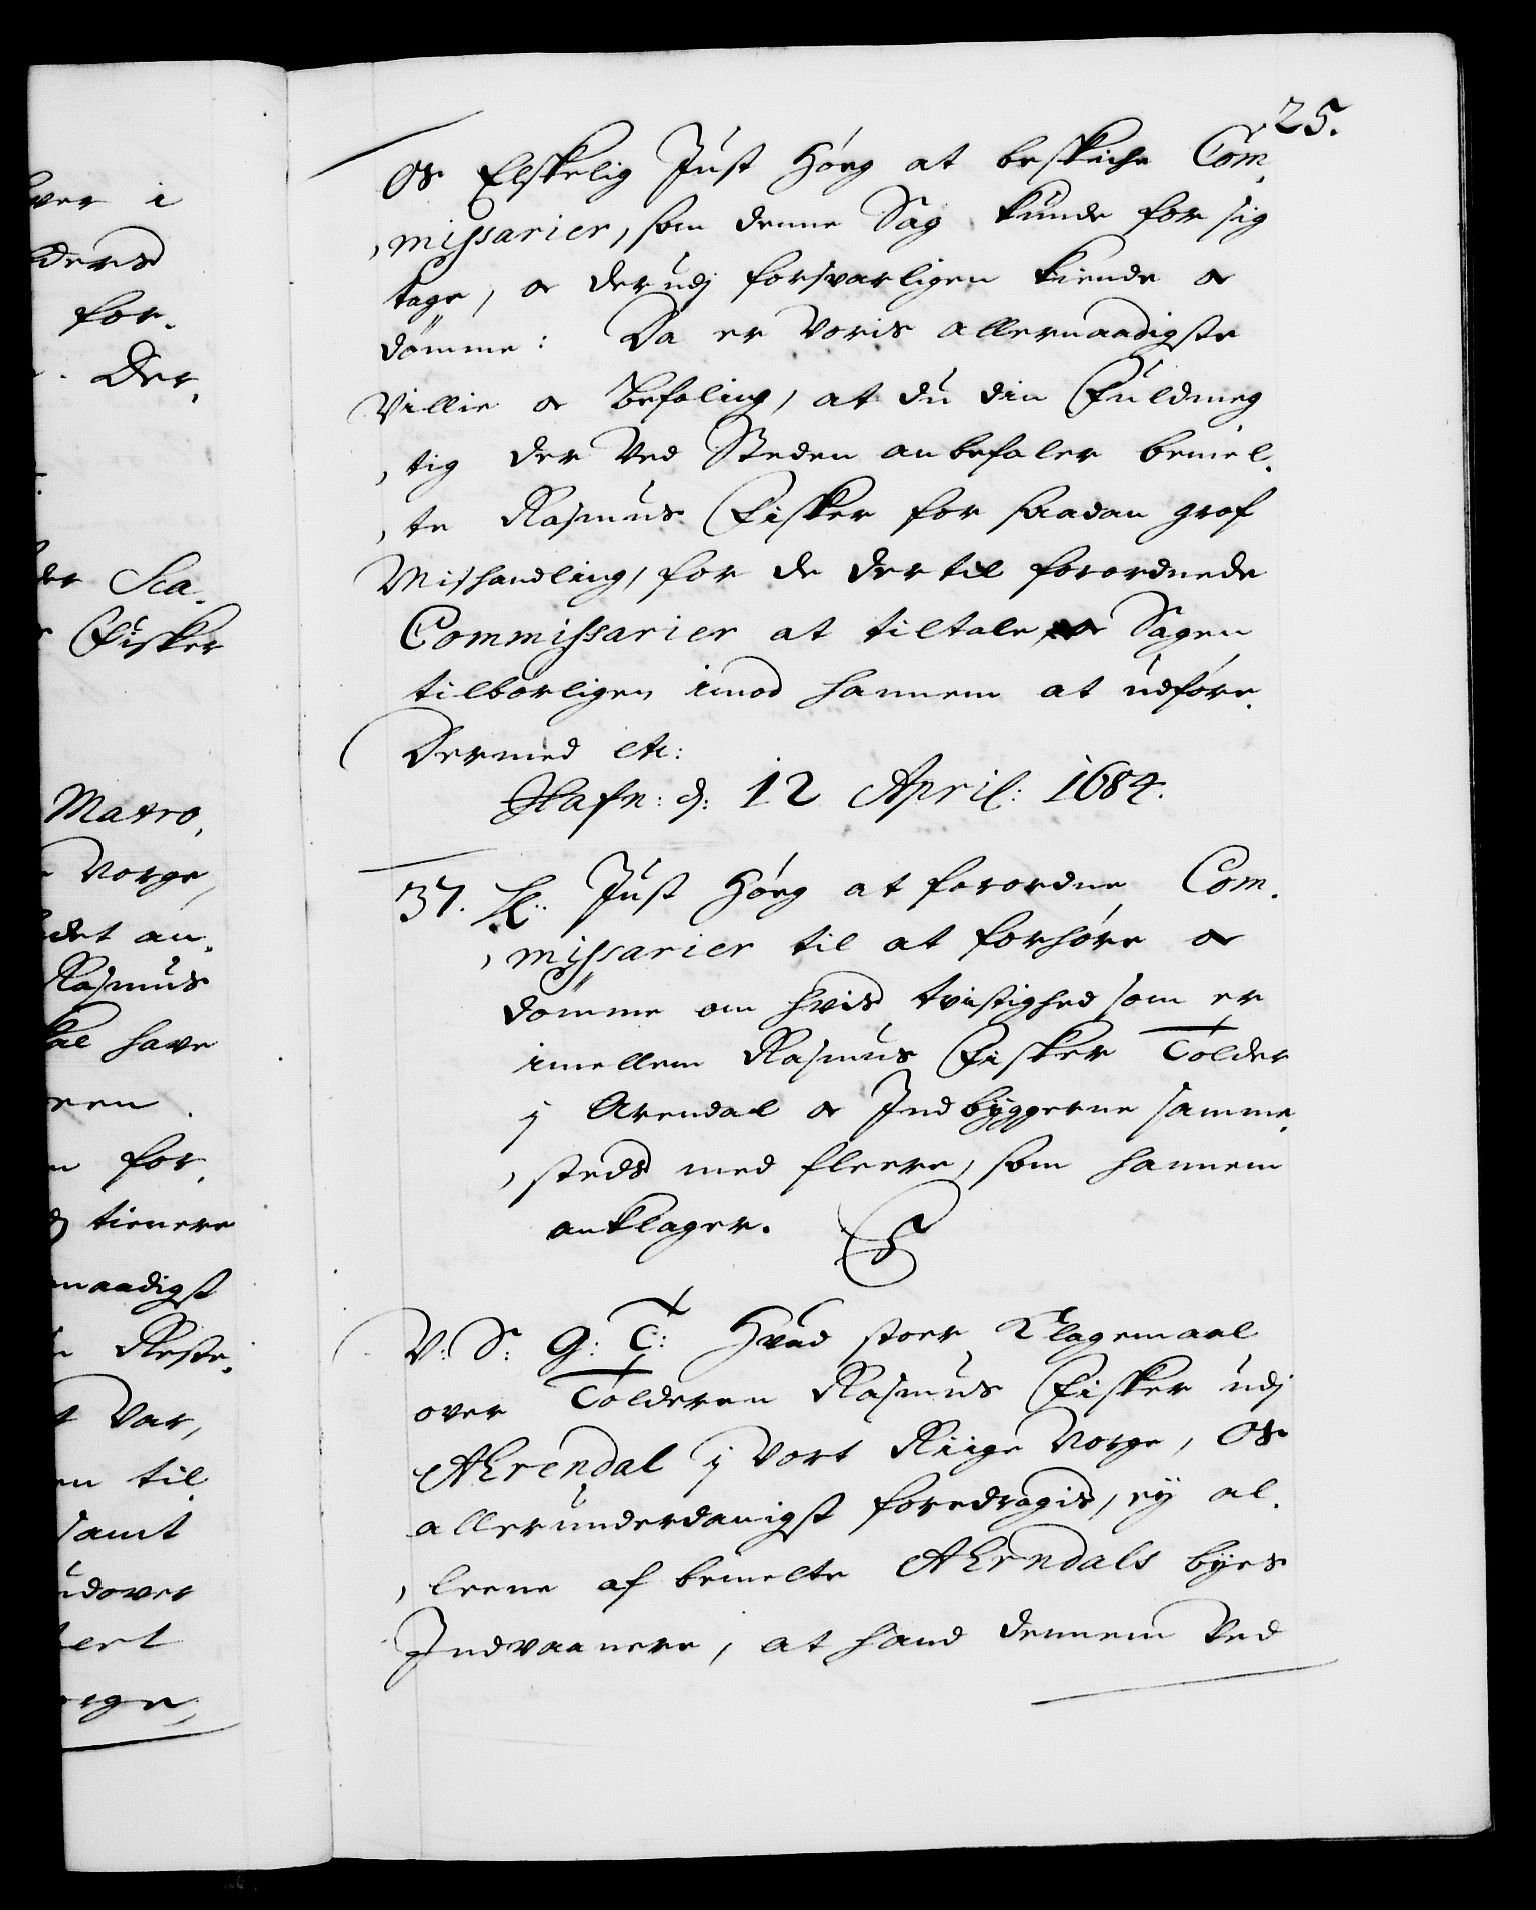 25.
Os Elskelig Just Høeg at beskiche Com,
,missarier, som denne Sag kunde for sig
tage, oc derudj forsvarligen kiende oc
dømme: Da er Voris allernaadigste
Villie oc Befaling, at du din Fuldmeg
,tig der Ved Steden anbefaler bemel,
,te Rasmus Fisker for saadan grof
Mishandling, for de dertil forordnede
Commissarier at tiltale oc Sagen
tilbørligen imod hannem at udføre.
Dermed etc:
Hafn: d: 12 April: 1684.
37. Just Høeg at forordne Com,
,missarier til at forhøre oc
dømme om hvis tvistighed som er
imellem Rasmus Fisker Tolder
j Arendal oc Indbyggerne samme,
,steds med fleere, som hannem
anklager.
V: S: G: T: Hvad stoer Klagemaal
over Tolderen Rasmus Fisker udj
Ahrendal j Vort Riige Norge, Os
allerunderdanigst foredragis, ej al,
,leene af bemelte Ahrndals byes
Indvaanere, at hand dennem Ved
ver i
for,
Der,
der Sca,
Fisker
Matro,
Norge,
det an,
Rasmus
have
for,
tienere
naadigst
Reste,
Var,
en til
samt
udover